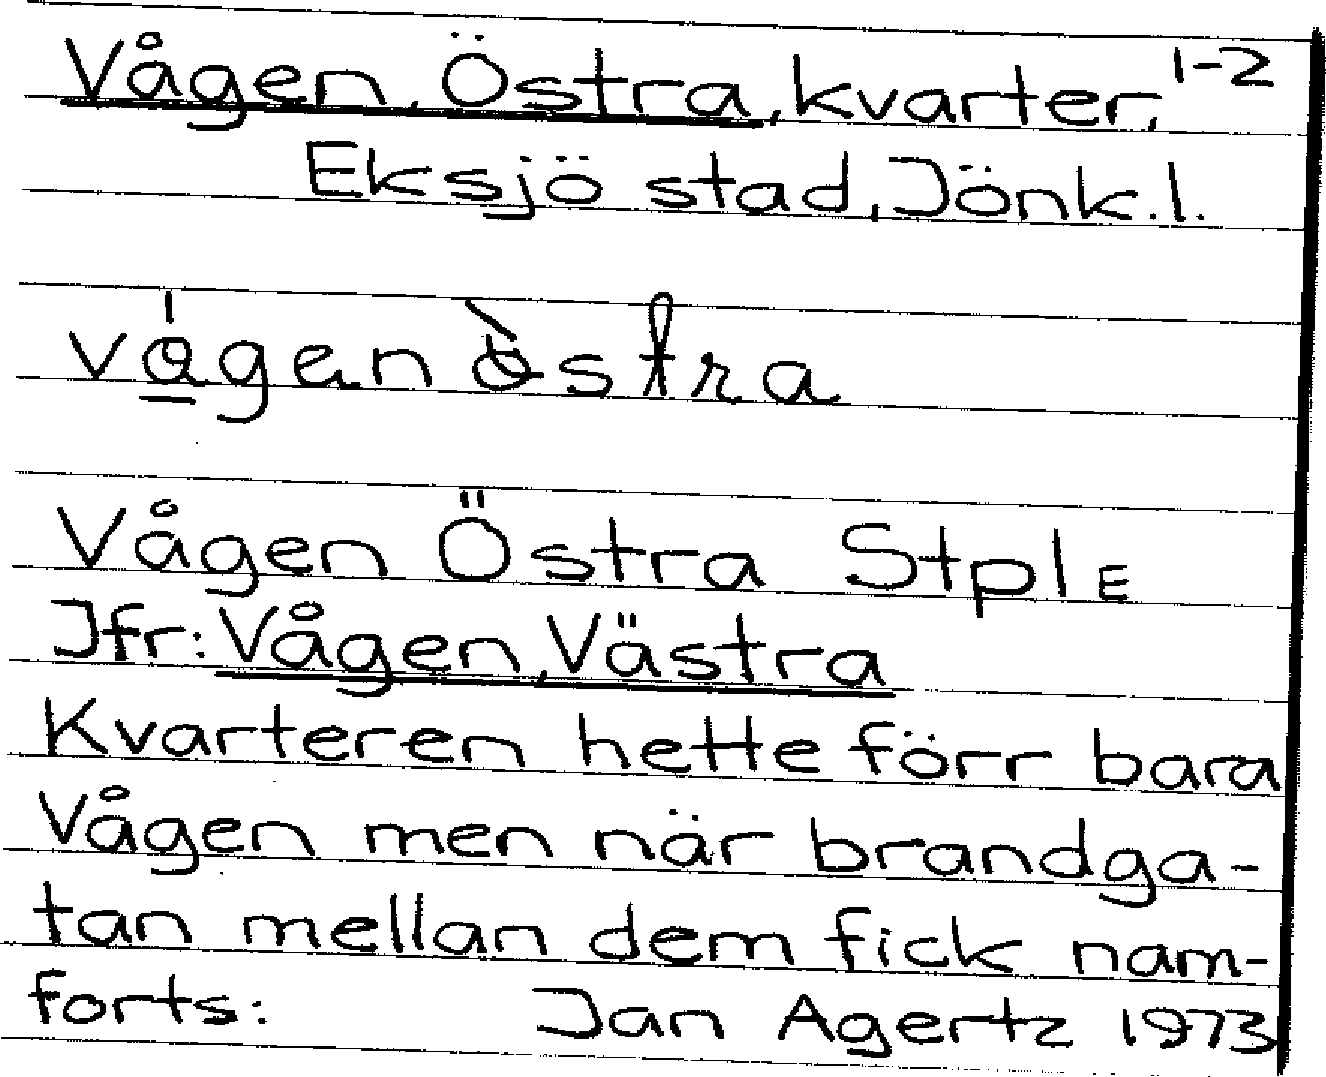 Vågen, Östra, kvarter, 1-2
Eksjö stad, Jönk.l.
Vågen Östra StplE
Jfr: Vågen, Västra
Kvarteren hette förr bara
Vågen men när brandga-
tan mellan dem fick nam-
forts: Jan Agertz 1973